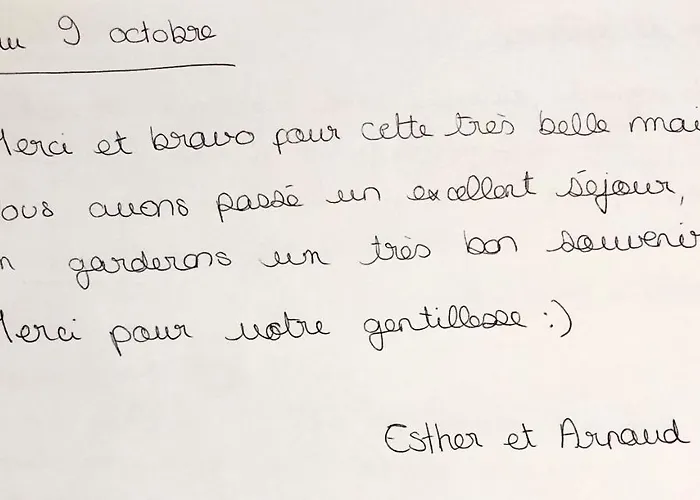 au 9 octobre
Merci et bravo pour cette très belle mai
ous avons passé un excellent séjour,
n garderons un très bon souvenir
Merci pour votre gentillesse :)
Esther et Arnaud